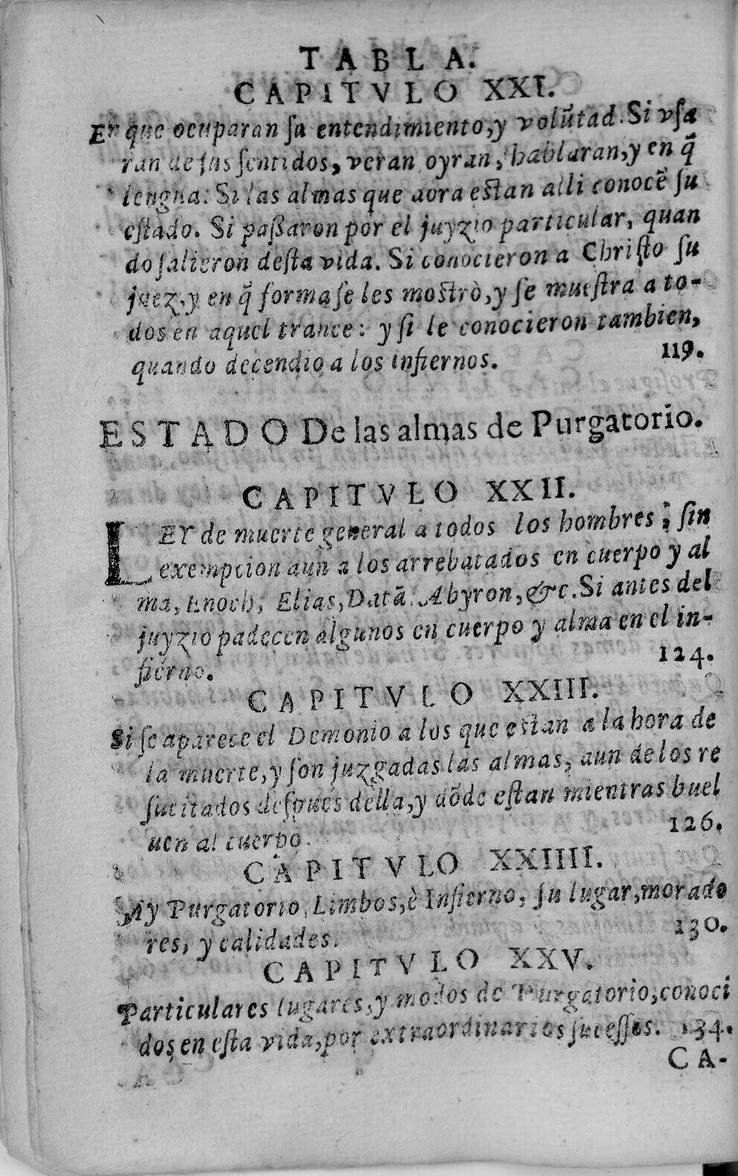 TABLA.
CAPITVLO XXI.
En que ocuparan su entendimiento, y volũtad. Si vsa
ran de sus sentidos, veran oyran, hablaran, y en q̃
lengua. Si las almas que aora estan alli conocẽ su
estado. Si passaron por el juyzio particular, quan
do salieron desta vida. Si conocieron a Christo su
juez, y en q̃ forma se les mostrò, y se muestra a to-
dos en aquel trance: y si le conocieron tambien,
quando decendio a los infiernos. 119.
ESTADO De las almas de Purgatorio.
CAPITVLO XXII.
LEY de muerte general a todos los hombres; sin
exempcion aun a los arrebatados en cuerpo y al
ma, Enoch, Elias, Datã. Abyron, &c. Si antes del
juyzio padecen algunos en cuerpo y alma en el in-
fierno. 124.
CAPITVLO XXIII.
Si se aparece el Demonio a los que estan a la hora de
la muerte, y son juzgadas las almas, aun de los re
sucitados despues della, y dõde estan mientras buel
uen al cuerpo. 126.
CAPITVLO XXIIII.
Ay Purgatorio, Limbos, è Infierno, su lugar, morado
res, y calidades. 130.
CAPITVLO XXV.
Particulares lugares, y modos de Purgatorio, conoci
dos en esta vida, por extraordinarios sucessos. 134.
CA-